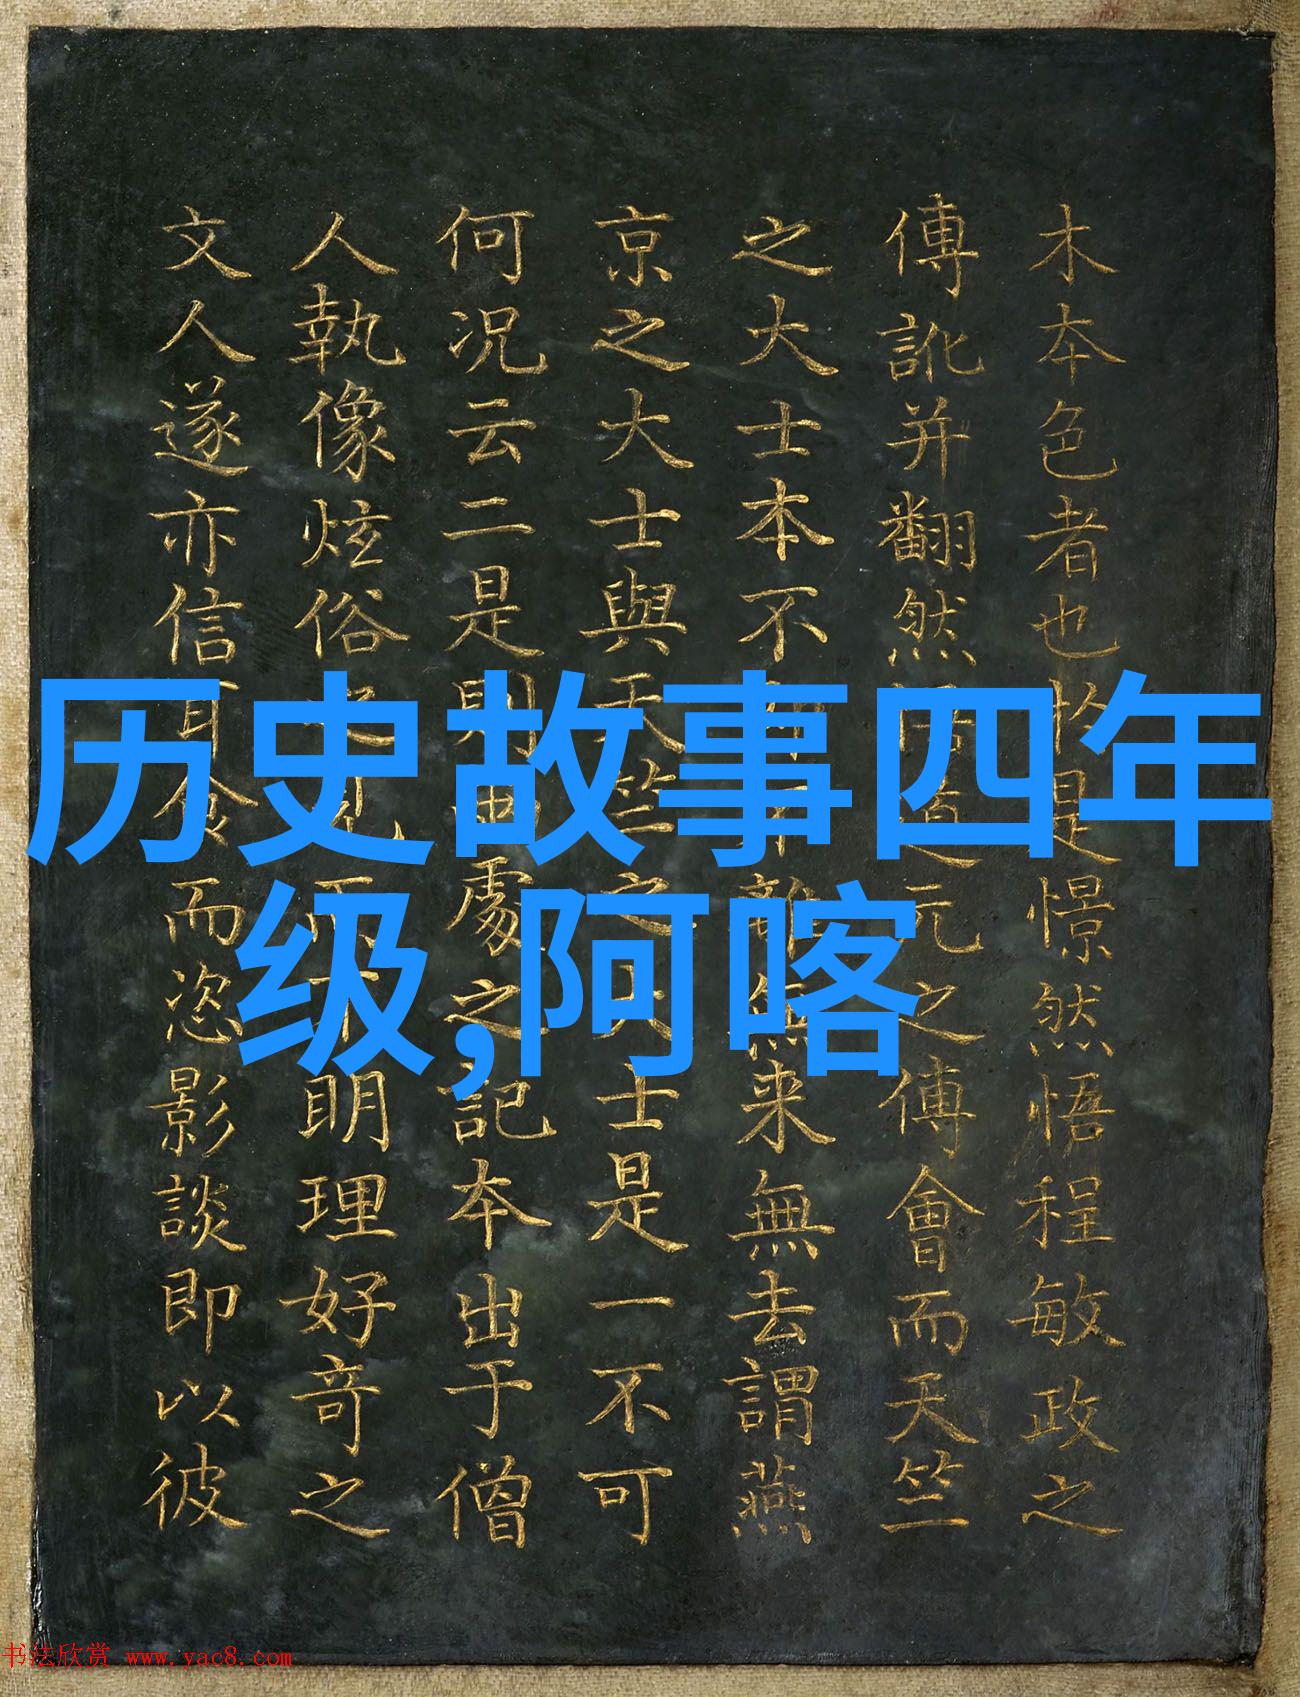 木本色者也是憬然悟程敏政之
傳訛并翻然之元之傅會而天竺
之大士本不離無来無去謂燕
京之大士與天竺之大士是一不可
何况云二是則處之記本出于僧
人執像炫俗之見而不明理好奇之
文人遂亦信耳食而恣影談即以彼
历史故事四年
级,阿喀
书法欣赏 www.yac8.com